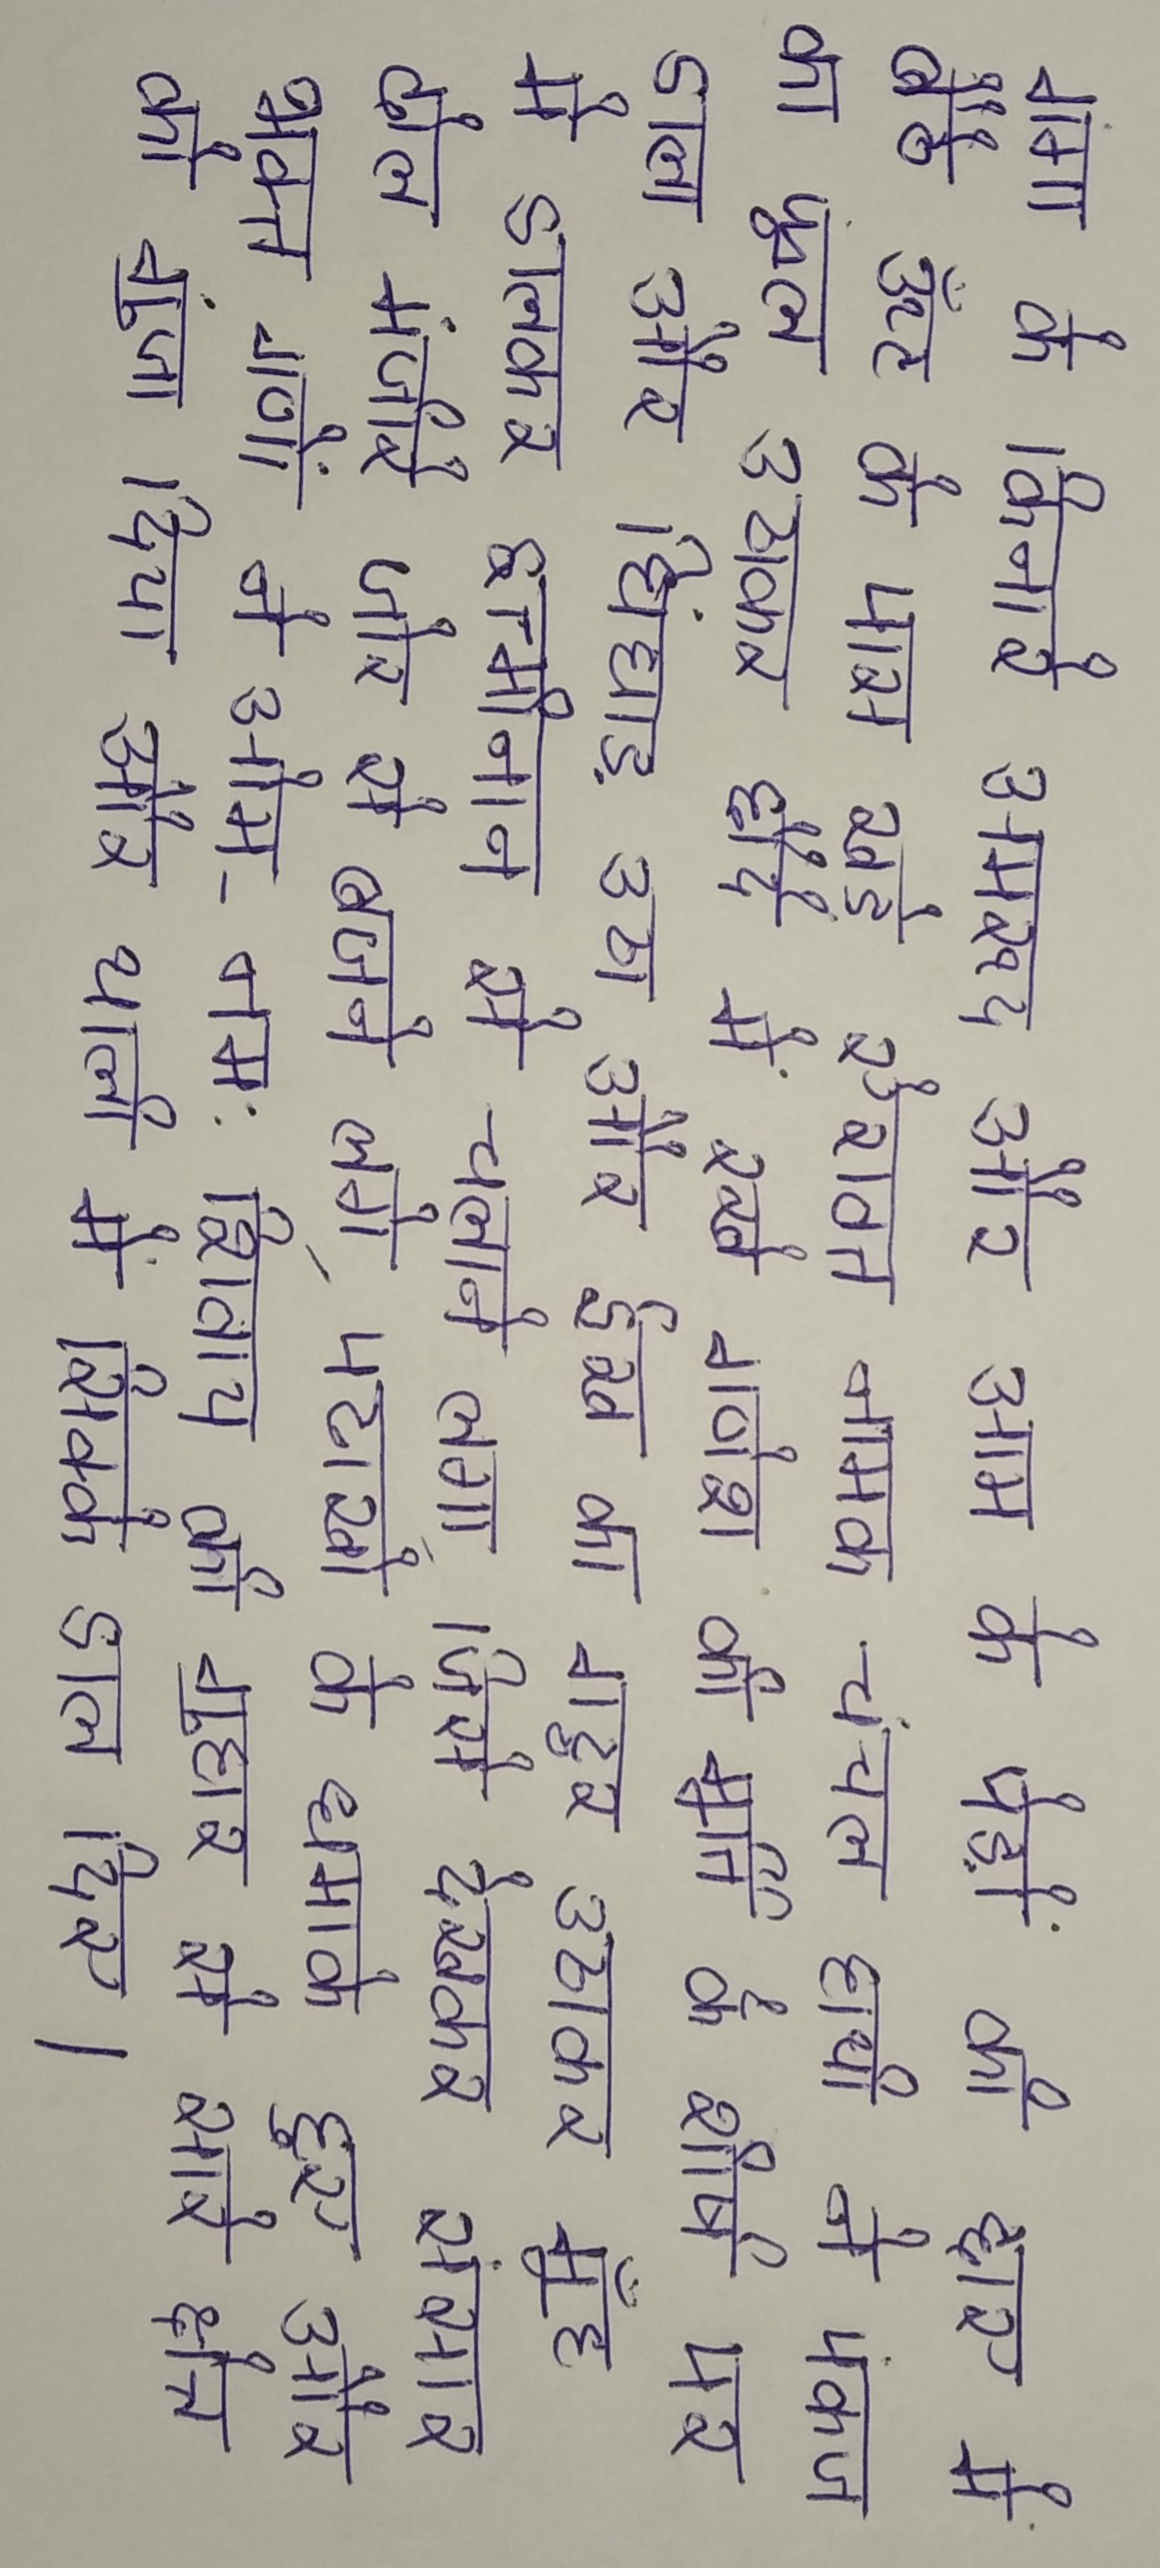 गंगा के किनारे अमरूद और आम के पेड़ों की छाए में
बैठे ऊँट के पास खड़े ऐरावत नामक चंचल हाथी ने पंकज
का फूल उठाकर हौदे में रखे गणेश की मूर्ति के शीर्ष पर
डाला और चिंघाड़ उठा और ईख का गट्ठर उठाकर मूँह
मे डालकर इत्मीनान से चलाने लगा, जिसे देखकर संसार
ढोल मंजीरे जोर से बजने लगे, पटाखो के धमाके हुए और
भक्त गणों ने ओम- नमः शिवाय की गुहार से सारे क्षेत्र
को गुंजा दिया और थाली में सिक्के डाल दिए।